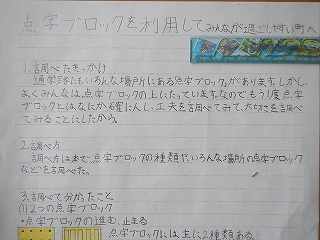 点字ブロックを利用してみんなが過ごしやすい町へ
1.調べたきっかけ
通学路にもいろんな場所にある点字ブロックがあります。しかし、
よくみんなは、点字ブロックの上にたっています。なのでもう1度点字
ブロックとはなにか確にんし、工夫を調べてみて、大切さを調べ
てみることにしたから。
2.調べ方
調べ方は本で、点字ブロックの種類や、いろんな場所の点字ブロック
などを調べた。
3.調べて分かったこと
(1)2つの点字ブロック
・点字ブロックの進む、止まる
点字ブロックには、主に2種類ある